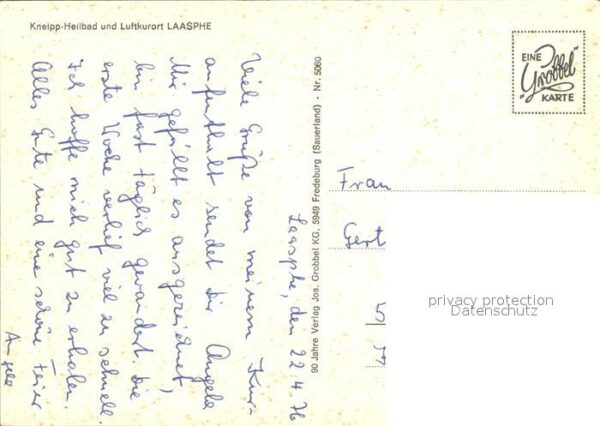 Kneipp-Heilbad und Luftkurort LAASPHE
EINE
"Grobbel"
KARTE
Laasphe, den 22.4.76
Viele Grüße von meinem Kur-
aufenthalt sendet dir Angela
Mir gefällt es ausgezeichnet,
bin fast täglich gewandert. Die
erste Woche verlief viel zu schnell.
Ich hoffe mich gut zu erholen.
Alles Gute und eine schöne Feier
Angela
90 Jahre Verlag Jos. Grobbel KG, 5949 Fredeburg (Sauerland) - Nr. 5060
Frau
Gert
5
privacy protection
Datenschutz